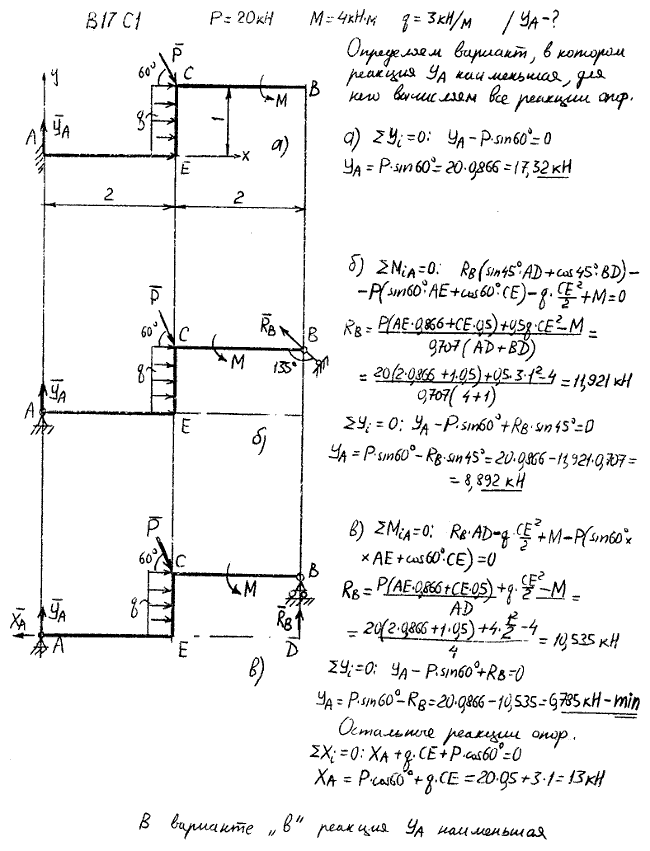 В17 С1 P = 20кН M = 4кН·м q = 3кН/м / YA - ?
Определяем вариант, в котором
реакция YA наименьшая, для
чего вычисляем все реакции опор.
y
P̅
60°
C
B
M
Y̅A
A
q
1
E
x
а)
2
2
а) ΣYi=0: YA-P·sin60°=0
YA=P·sin60°=20·0,866=17,32 кН
P̅
60°
C
R̅B
B
M
135°
q
Y̅A
A
E
б)
б) ΣMiA=0: RB(sin45°·AD+cos45°·BD)-
-P(sin60°·AE+cos60°·CE)-q·CE²/2+M=0
RB= P(AE·0,866+CE·0,5)+0,5q·CE²-M / 0,707(AD+BD) =
= 20(2·0,866+1·0,5)+0,5·3·1²-4 / 0,707(4+1) =11,921 кН
ΣYi=0: YA-P·sin60°+RB·sin45°=0
YA=P·sin60°-RB·sin45°=20·0,866-11,921·0,707=
=8,892 кН
P̅
60°
C
B
M
q
X̅A
Y̅A
A
E
R̅B
D
в)
в) ΣMiA=0: RB·AD-q·CE²/2+M-P(sin60°×
×AE+cos60°·CE)=0
RB= P(AE·0,866+CE·0,5)+q·CE²/2-M / AD =
= 20(2·0,866+1·0,5)+4·1²/2-4 / 4 =10,535 кН
ΣYi=0: YA-P·sin60°+RB=0
YA=P·sin60°-RB=20·0,866-10,535=6,785 кН-min
Остальные реакции опор.
ΣXi=0: XA+q·CE+P·cos60°=0
XA=P·cos60°+q·CE=20·0,5+3·1=13кН
В варианте „в" реакция YA наименьшая